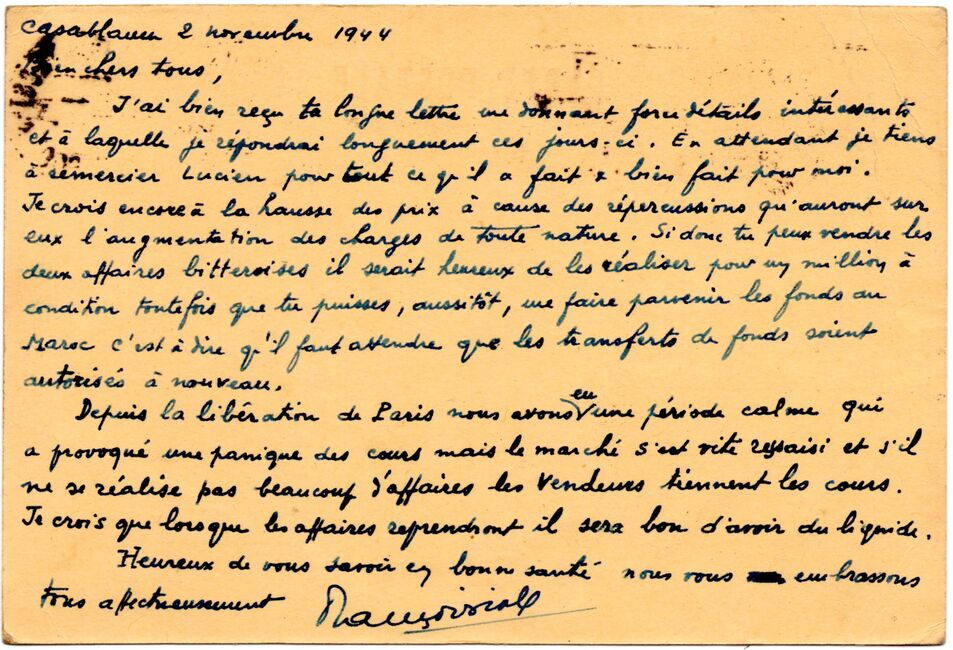 Casablanca 2 novembre 1944
Bien chers tous,
J'ai bien reçu ta longue lettre me donnant force détails intéressants
et à laquelle je répondrai longuement ces jours-ci. En attendant je tiens
à remercier Lucien pour tout ce qu'il a fait & bien fait pour moi.
Je crois encore à la hausse des prix à cause des répercussions qu'auront sur
eux l'augmentation des charges de toute nature. Si donc tu peux vendre les
deux affaires bitteroises il serait heureux de les réaliser pour un million à
condition toutefois que tu puisses, aussitôt, me faire parvenir les fonds au
Maroc c'est à dire qu'il faut attendre que les transferts de fonds soient
autorisés à nouveau.
Depuis la libération de Paris nous avons eu une période calme qui
a provoqué une panique des cours mais le marché s'est vite ressaisi et s'il
ne se réalise pas beaucoup d'affaires les vendeurs tiennent les cours.
Je crois que lorsque les affaires reprendront il sera bon d'avoir du liquide.
Heureux de vous savoir en bonne santé nous vous embrassons
tous affectueusement